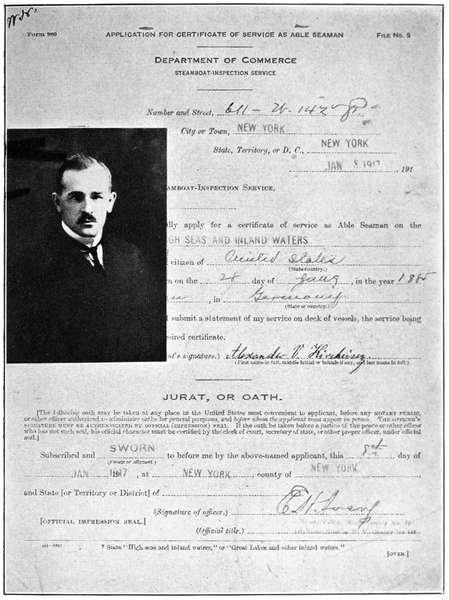 Form 989
APPLICATION FOR CERTIFICATE OF SERVICE AS ABLE SEAMAN
FILE NO. 5
DEPARTMENT OF COMMERCE
STEAMBOAT-INSPECTION SERVICE
Number and Street, 611 - W. 142
City or Town, NEW YORK
State, Territory, or D. C., NEW YORK
JAN 8 1917, 191
EAMBOAT-INSPECTION SERVICE,
lly apply for a certificate of service as Able Seaman on the
GH SEAS AND INLAND WATERS
citizen of United States
(State country.)
n on the 28 day of , in the year 1885
, in Germany
(State or country.)
d submit a statement of my service on deck of vessels, the service being
ired certificate.
t's signature.) Alexander V. Kircheisen
(First name in full, middle initial or initials if any, and last name in full.)
JURAT, OR OATH.
[The following oath may be taken at any place in the United States most convenient to applicant, before any NOTARY PUBLIC,
or other officer authorized to administer oaths for general purposes, and before whom the applicant must appear in person. THE OFFICER'S
SIGNATURE MUST BE AUTHENTICATED BY OFFICIAL (IMPRESSION) SEAL. If the oath be taken before a justice of the peace or other officer
who has not such seal, his official character must be certified by the clerk of court, secretary of state, or other proper officer, under official
seal.]
Subscribed and SWORN to before me by the above-named applicant, this 8th day of
(Sworn or affirmed.)
JAN 1917, at NEW YORK county of NEW YORK
and State [or Territory or District] of
(Signature of officer.)
[OFFICIAL IMPRESSION SEAL.]
(Official title.)
* State "High seas and inland waters," or "Great Lakes and other inland waters."
[OVER.]